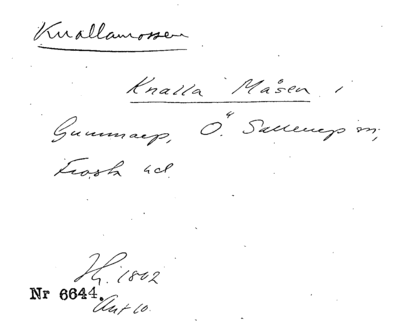 Knallamossen
Knalla Måsen i
Gummarp, Ö. Sallerup sn,
Frosta hd.
Hy. 1802
Nr 6644.
Akt 10.